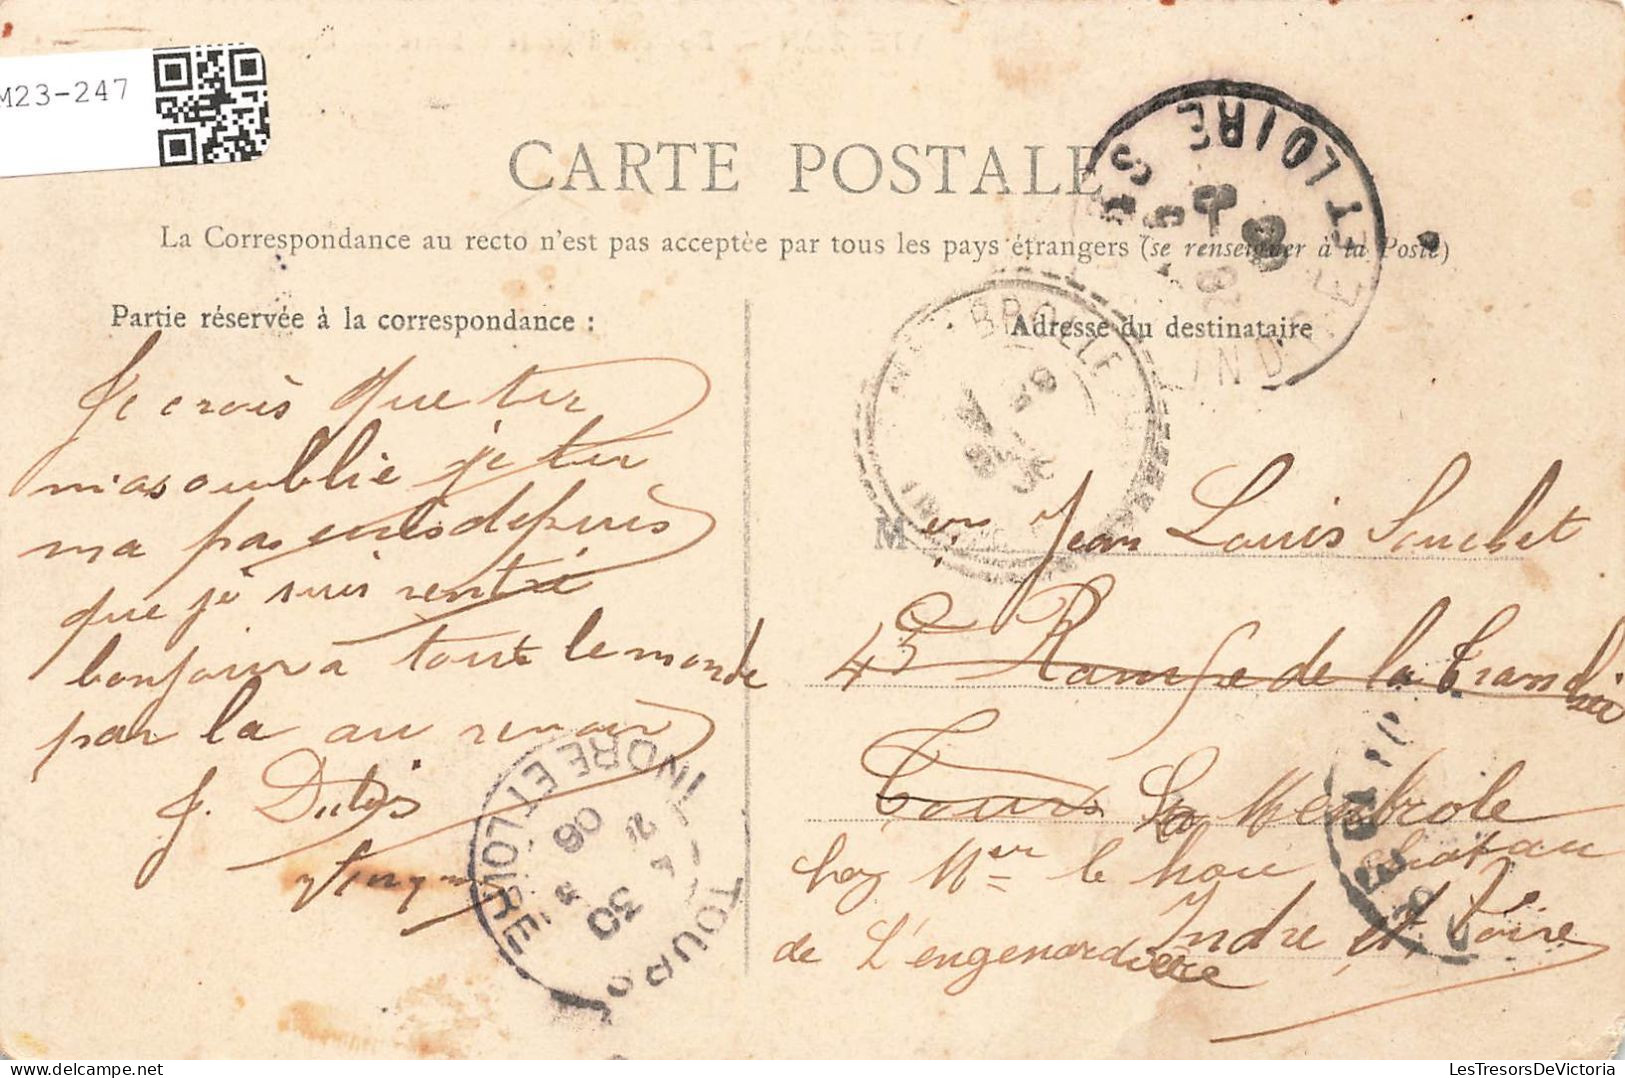 M23-247
CARTE POSTALE
La Correspondance au recto n'est pas acceptée par tous les pays étrangers (se renseigner à la Poste)
Partie réservée à la correspondance :
Je crois que tu
m'as oublié je tu
ma pas depuis
que je suis rentré
bonjour a tout le monde
par la au revoir
J.
Adresse du destinataire
Mr Jean Louis Souchet
43 Rampe de la Tranchée
Tours La Membrole
chez Mr le
de L'engenardière Indre et Loire
TOURS
INDRE ET LOIRE
30
06
ET LOIRE
INDRE
LesTresorsDeVictoria